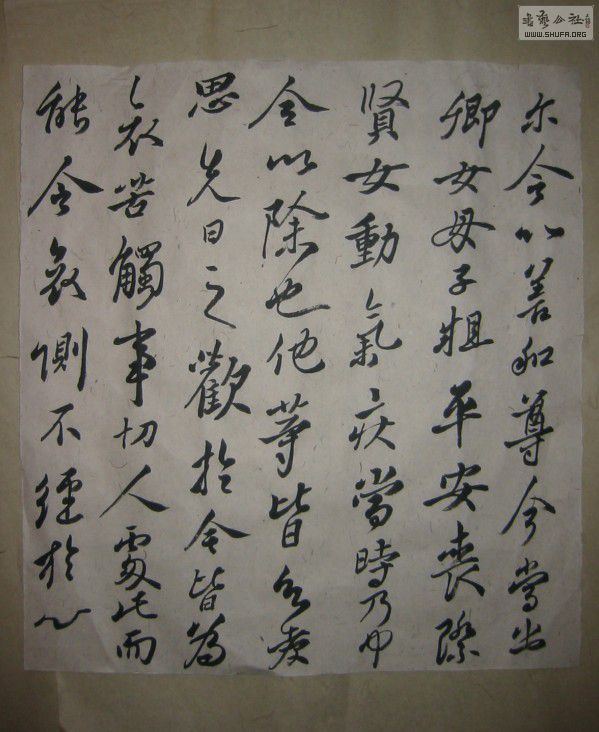 書藝公社
WWW.SHUFA.ORG
尔令以善和尊今當出
卿女母子粗平安喪際
賢女動氣疾當時乃
令以除也他等皆
思先日之歡於今皆為
哀苦觸事切人處此而
能令哀惻不經於心